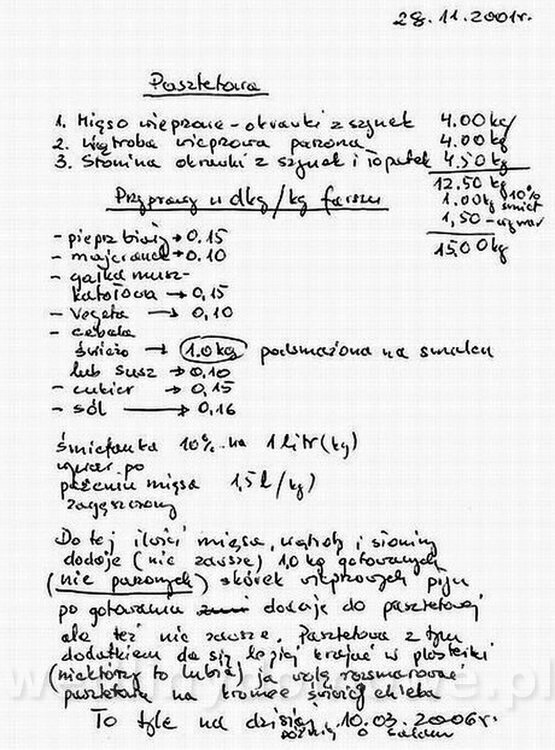 28.11.2001r.
Pasztetowa
1. Mięso wieprzowe - okrawki z szynek 4.00 kg
2. Wątroba wieprzowa parzona 4.00 kg
3. Słonina okrawki z szynek i łopatek 4,50 kg
12.50 kg
1.00 kg 10% śmiet
1,50 - wywar
15.00 kg
Przyprawy w dkg/kg farszu
- pieprz biały → 0.15
- majeranek → 0.10
- gałka musz-
katołowa → 0,15
- Vegeta → 0,10
- cebula
świeża → 1.0 kg podsmażona na smalcu
lub susz → 0,10
- cukier → 0,15
- sól → 0,16
śmietanka 10% na 1 litr (kg)
wywar po
parzeniu mięsa 1,5 l/kg)
zagęszczony
Do tej ilości mięsa, wątroby i słoniny
dodaję (nie zawsze) 1,0 kg gotowanych
(nie parzonych) skórek wieprzowych
po gotowaniu dodaję do pasztetowej
ale też nie zawsze. Pasztetowa z tym
dodatkiem da się lepiej krajać w plasterki
(niektórzy to lubią) ja wolę rozsmarować
pasztetową na kromce świeżego chleba
To tyle na dzisiaj 10.03.2006r.
później o salami